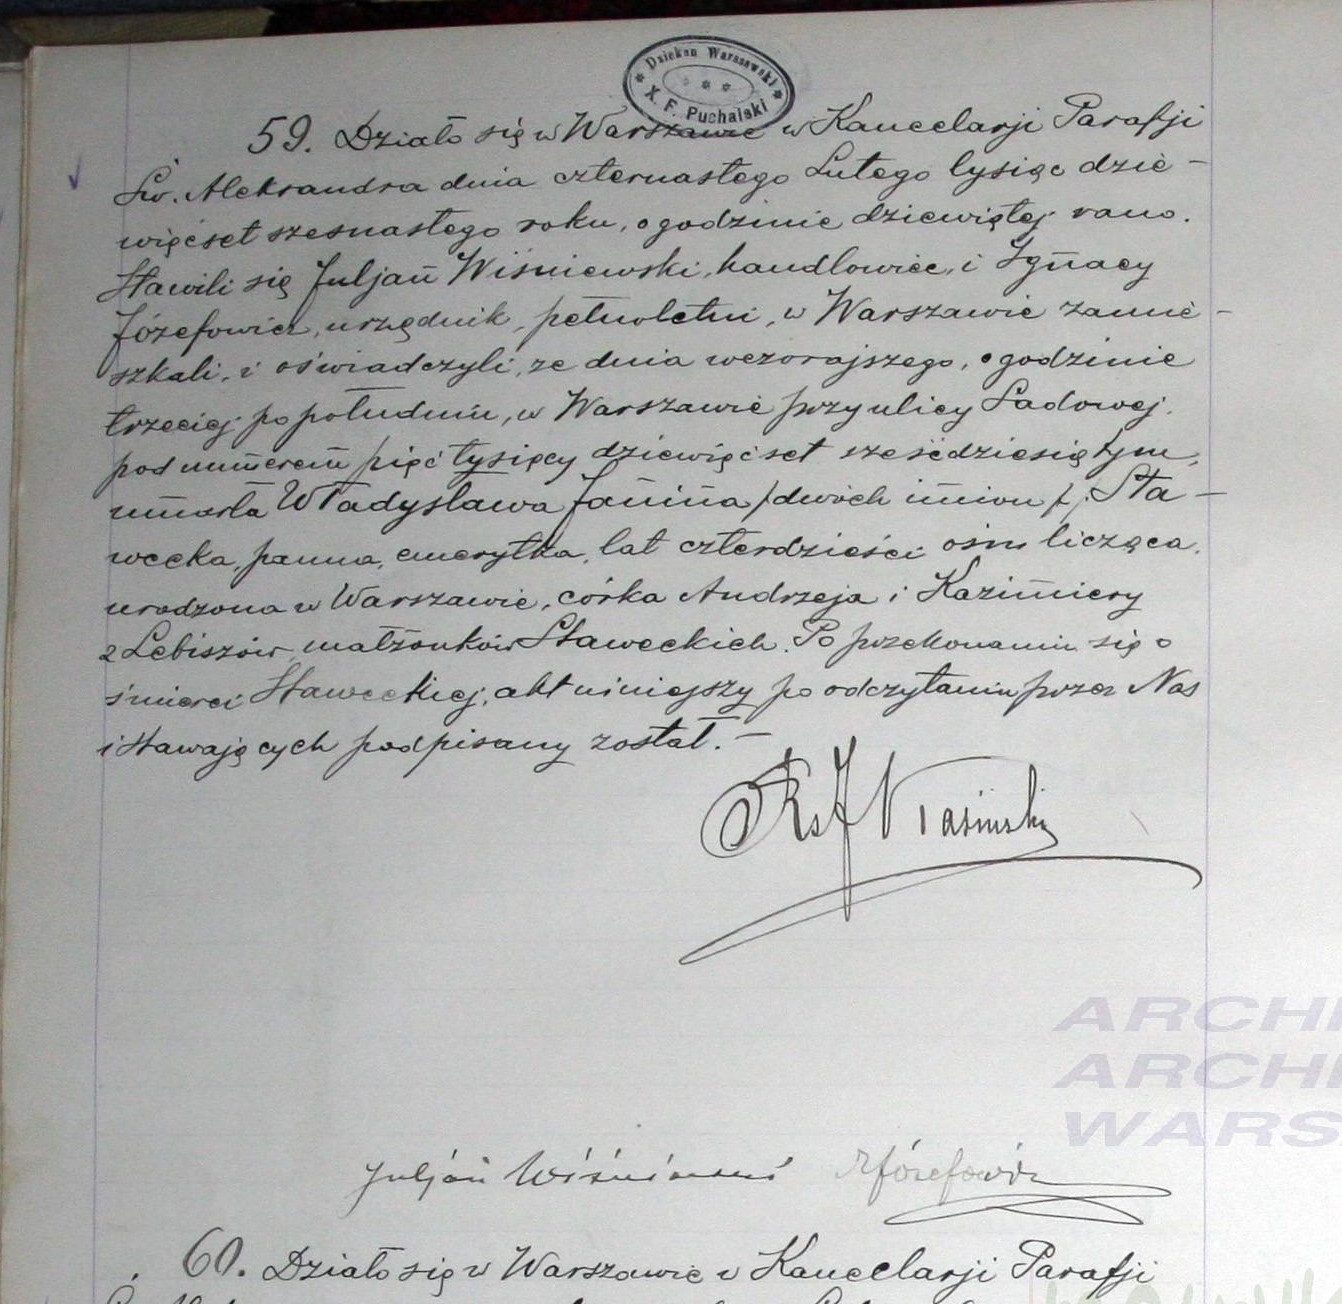 Dziekan Warszawski
X. F. Puchalski
59. Działo się w Warszawie w Kancelarji Parafji
Św. Aleksandra dnia czternastego Lutego tysiąc dzie-
więćset szesnastego roku, o godzinie dziewiątej rano.
Stawili się Juljan Wiśniewski, handlowiec, i Ignacy
Józefowicz, urzędnik, pełnoletni, w Warszawie zamie-
szkali, i oświadczyli, że dnia wczorajszego, o godzinie
trzeciej po południu, w Warszawie przy ulicy Sadowej,
pod numerem pięć tysięcy dziewięćset sześćdziesiątym,
umarła Władysława Janina /dwóch imion/, Sta-
wecka, panna, emerytka, lat czterdzieści ośm licząca,
urodzona w Warszawie, córka Andrzeja i Kazimiery
z Lebiszów małżonków Staweckich. Po przekonaniu się o
śmierci Staweckiej, akt niniejszy po odczytaniu przez Nas
i stawających podpisany został.-
Ks J
Juljan Wiśniewski Józefowicz
60. Działo się w Warszawie w Kancelarji Parafji
ARCHI
ARCHI
WARS